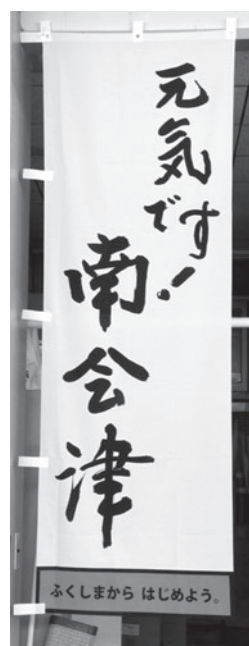 元気です!
南会津
ふくしまから はじめよう。